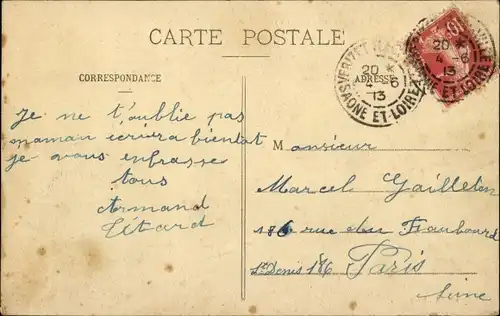 CARTE POSTALE
CORRESPONDANCE
ADRESSE
20 *
4 - 6
13
SAONE ET LOIRE
20 *
4 - 6
13
SAONE ET LOIRE
10
je ne t'oublie pas
maman ecrira bientot
je vous enbrasse
tous
Armand
Létard
Monsieur
Marcel Gailleton
186 rue du Fauboard
St Denis 186 Paris
Seine